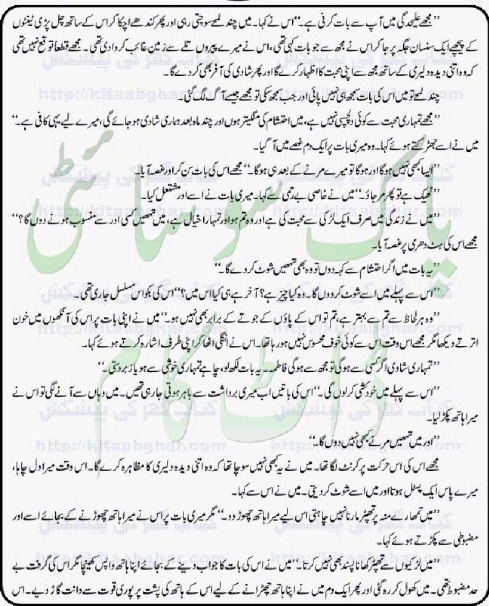 ”مجھے علیحدگی میں آپ سے بات کرنی ہے۔“ اس نے کہا۔ میں چند لمحے سوچتی رہی اور پھر کندھے اچکا کر اس کے ساتھ چل پڑی ٹینٹوں
کے پیچھے ایک سنسان جگہ پر جا کر اس نے مجھ سے جو بات کہی تھی، اس نے میرے پیروں تلے سے زمین غائب کروا دی تھی۔ مجھے قطعاً توقع نہیں تھی
کہ وہ اتنی دیدہ دلیری کے ساتھ مجھ سے اپنی محبت کا اظہار کرے گا اور پھر شادی کی آفر بھی کر دے گا۔
چند لمحے تو میں اس کی بات سمجھ ہی نہیں پائی اور جب سمجھ سکی تو مجھے جیسے آگ لگ گئی۔
”مجھے تمہاری محبت سے کوئی دلچسپی نہیں ہے، میں احتشام کی منگیتر ہوں اور چند ماہ بعد ہماری شادی ہو جائے گی، میرے لیے یہی کافی ہے۔“
میں نے اسے جھڑکتے ہوئے کہا۔ وہ میری بات پر ایک دم غصے میں آ گیا۔
”ایسا کبھی نہیں ہوگا اور ہوگا تو میرے مرنے کے بعد ہی ہوگا۔“ مجھے اس کی بات سن کر اور غصہ آیا۔
”ٹھیک ہے تو پھر مر جاؤ۔“ میں نے خاصی بے رحمی سے کہا۔ میری بات نے اسے اور مشتعل کیا۔
”میں نے زندگی میں صرف ایک لڑکی سے محبت کی ہے اور وہ تم ہو اور تمہارا خیال ہے، میں تمھیں کسی اور سے منسوب ہونے دوں گا؟“
مجھے اس کی ہٹ دھرمی پر غصہ آیا۔
”یہ بات میں اگر احتشام سے کہہ دوں تو وہ ابھی تمھیں شوٹ کر دے گا۔“
”اس سے پہلے میں اسے شوٹ کر دوں گا۔ وہ کیا چیز ہے؟ آخر ہے ہی کیا اس میں؟“ اس کی بکواس مسلسل جاری تھی۔
”وہ ہر لحاظ سے تم سے بہتر ہے، تم تو اس کے پاؤں کے جوتے کے برابر بھی نہیں ہو۔“ میں نے اپنی بات پر اس کی آنکھوں میں خون
اترتے دیکھا مگر مجھے اس وقت اس سے کوئی خوف محسوس نہیں ہو رہا تھا۔ اس نے انگلی اٹھا کر اپنی طرف اشارہ کرتے ہوئے کہا۔
”تمہاری شادی اگر کسی سے ہوگی تو مجھ سے ہوگی فاطمہ! یہ بات لکھ لو، چاہے تمہاری خوشی سے ہو یا زبردستی۔“
”اس سے پہلے میں خودکشی کر لوں گی۔“ اس کی باتیں اب میری برداشت سے باہر ہوتی جا رہی تھیں۔ میں وہاں سے آنے لگی تو اس نے
میرا ہاتھ پکڑ لیا۔
”اور میں تمھیں مرنے بھی نہیں دوں گا۔“
مجھے اس کی اس حرکت پر کرنٹ لگا تھا۔ میں نے یہ کبھی نہیں سوچا تھا کہ وہ اتنی دیدہ دلیری کا مظاہرہ کرے گا۔ اس وقت میرا دل چاہا،
میرے پاس ایک پسٹل ہوتا اور میں اسے شوٹ کر دیتی۔ میں نے اس سے کہا۔
”میں تمھارے منہ پر تھپڑ مارنا نہیں چاہتی اس لیے میرا ہاتھ چھوڑ دو۔“ مگر میری بات پر اس نے میرا ہاتھ چھوڑنے کے بجائے اسے اور
مضبوطی سے پکڑتے ہوئے کہا۔
”میں لڑکیوں سے تھپڑ کھانا پسند بھی نہیں کرتا۔“ میں نے اس کی بات کا جواب دینے کے بجائے اپنا ہاتھ واپس کھینچا مگر اس کی گرفت بے
حد مضبوط تھی۔ میں کھول کر رہ گئی اور پھر ایک دم میں نے اپنا ہاتھ چھڑانے کے لیے اس کے ہاتھ کی پشت پر پوری قوت سے دانت گاڑ دیے۔ اس
پاک سوسائٹی
ڈاٹ کام
کتاب گھر کی پیشکش
http://kitaabghar.com